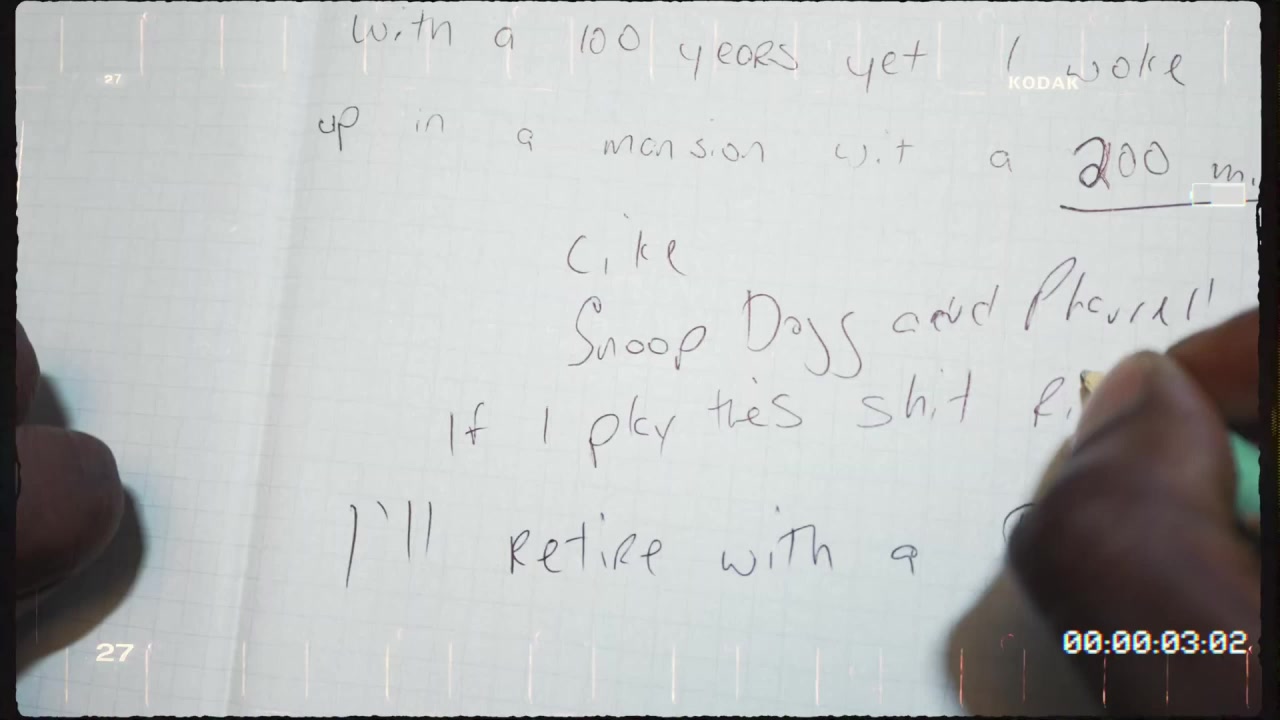 with a 100 years yet I woke
27
KODAK
up in a mansion wit a 200
Like
Snoop Dogg and Pharrell
If I play this shit
I'll retire with a
27
00:00:03:02